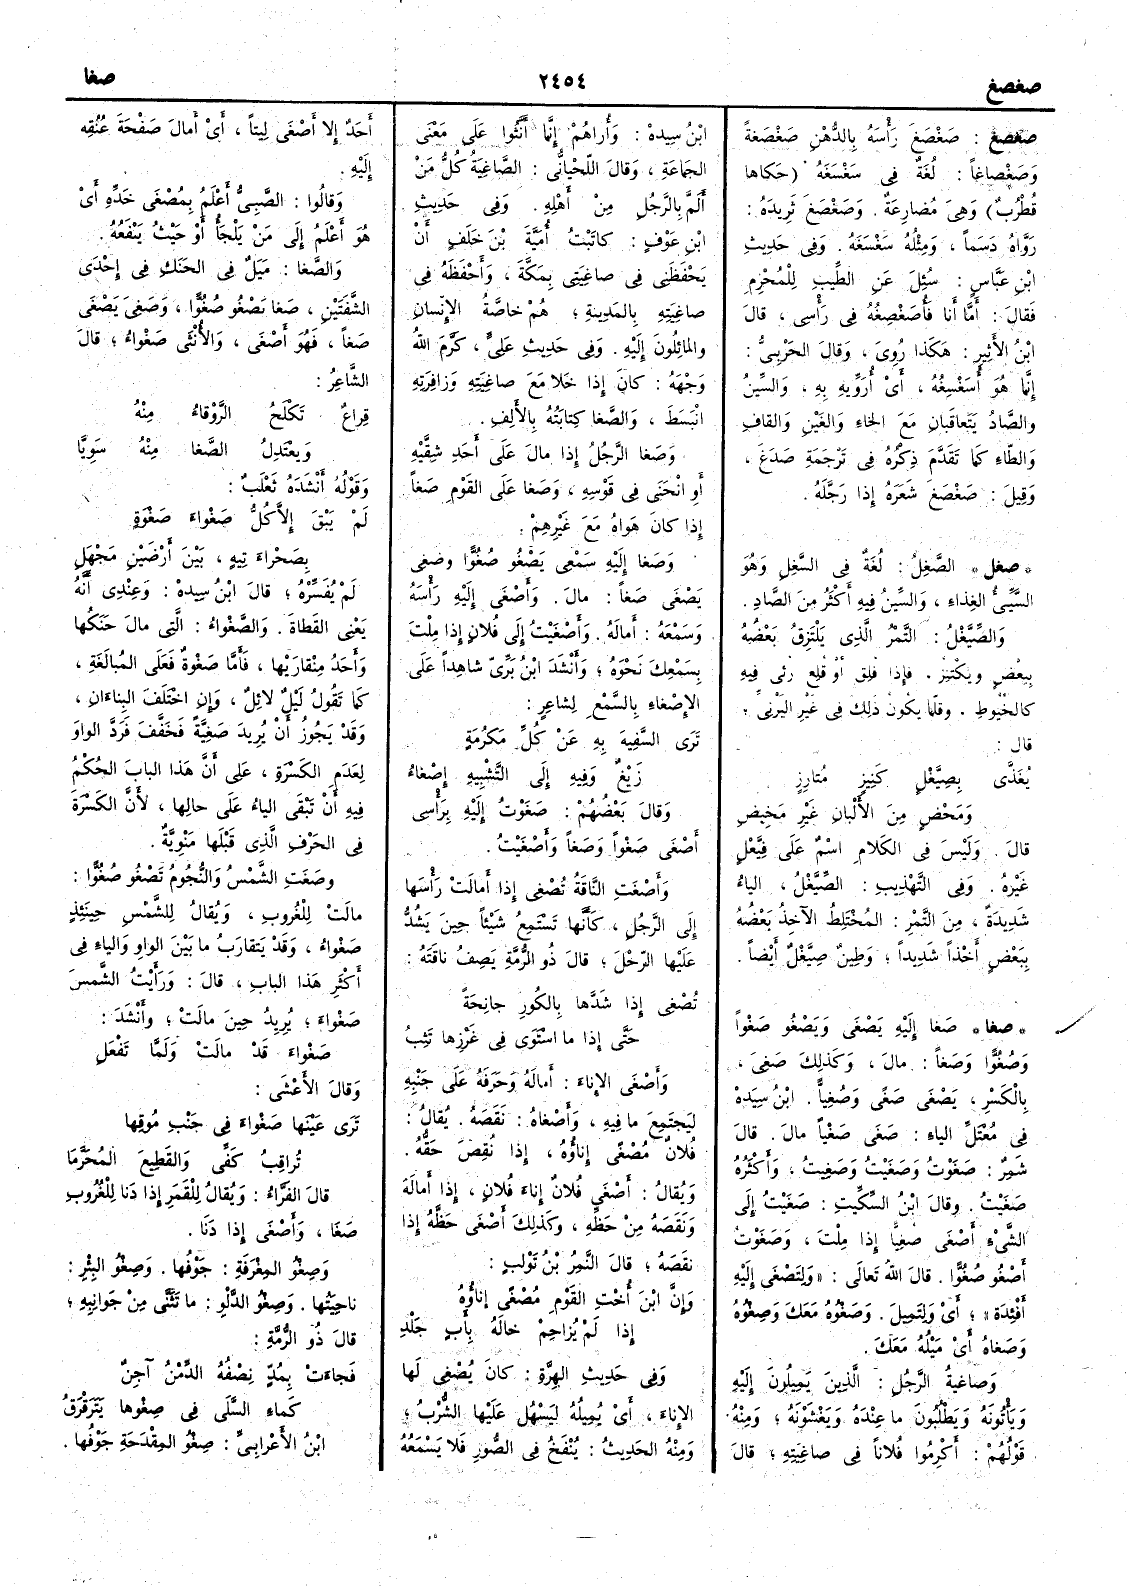 صغصغ
٢٤٥٤
صغا
صغصغ : صَغْصَغَ رَأْسَهُ بِالدُّهْنِ صَغْصَغَةً
وَصَغْصاغاً : لُغَةٌ فِى سَغْسَغَهُ (حَكاها
قُطْرُبٌ) وَهِىَ مُضارِعَةٌ . وَصَغْصَغَ ثَرِيدَهُ :
رَوَّاهُ دَسَماً ، وَمِثْلُهُ سَغْسَغَهُ . وَفِى حَدِيثِ
ابْنِ عَبَّاسٍ : سُئِلَ عَنِ الطِّيبِ لِلْمُحْرِمِ
فَقالَ : أَمَّا أَنا فَأُصَغْصِغُهُ فِى رَأْسِى ، قالَ
ابْنُ الأَثِيرِ : هَكَذا رُوِىَ ، وَقالَ الحَرْبِىُّ :
إِنَّما هُوَ أُسَغْسِغُهُ ، أَىْ أُرَوِّيهِ بِهِ ، وَالسِّينُ
وَالصَّادُ يَتَعاقَبانِ مَعَ الخاءِ وَالغَيْنِ وَالقافِ
وَالطَّاءِ كَما تَقَدَّمَ ذِكْرُهُ فِى تَرْجَمَةِ صَدَغَ ،
وَقِيلَ : صَغْصَغَ شَعَرَهُ إِذا رَجَّلَهُ .
* صغل * الصَّغِلُ : لُغَةٌ فِى السَّغِلِ وَهُوَ
السَّيِّئُ الغِذاءِ ، وَالسِّينُ فِيهِ أَكْثَرُ مِنَ الصَّادِ .
وَالصِّيَّغْلُ : التَّمْرُ الَّذِى يَلْتَزِقُ بَعْضُهُ
بِبَعْضٍ وَيَكْتَنِزُ . فَإِذا فُلِقَ أَوْ قُلِعَ رُئِىَ فِيهِ
كَالخُيُوطِ . وَقَلَّما يَكُونُ ذَلِكَ فِى غَيْرِ البَرْنِىِّ ؛
قال :
يُغَذَّى بِصِيَّغْلٍ كَنِيزٍ مُتارِزٍ
وَمَحْضٍ مِنَ الأَلْبانِ غَيْرِ مَخِيضِ
قالَ . وَلَيْسَ فِى الكَلامِ اسْمٌ عَلَى فِيَّعْلٍ
غَيْرُهُ . وَفِى التَّهْذِيبِ : الصِّيَّغْلُ ، الياءُ
شَدِيدَةٌ ، مِنَ التَّمْرِ : المُخْتَلِطُ الآخِذُ بَعْضُهُ
بِبَعْضٍ أَخْذاً شَدِيداً ؛ وَطِينٌ صِيَّغْلٌ أَيْضاً .
* صغا * صَغا إِلَيْهِ يَصْغَى وَيَصْغُو صَغْواً
وَصُغُوًّا وَصَغاً : مالَ ، وَكَذلِكَ صَغِىَ ،
بِالْكَسْرِ ، يَصْغَى صَغًى وَصُغِيًّا . ابْنُ سِيدَهْ
فِى مُعْتَلِّ الياءِ : صَغَى صَغْياً مالَ . قالَ
شَمِرٌ : صَغَوْتُ وَصَغَيْتُ وَصَغِيتُ ، وَأَكْثَرُهُ
صَغَيْتُ . وَقالَ ابْنُ السِّكِّيتِ : صَغَيْتُ إِلَى
الشَّىْءِ أَصْغَى صُغِيًّا إِذا مِلْتَ ، وَصَغَوْتُ
أَصْغُو صُغُوًّا . قالَ اللهُ تَعالَى : «وَلِتَصْغَى إِلَيْهِ
أَفْئِدَةُ» ؛ أَىْ وَلِتَمِيلَ . وَصَغْوُهُ مَعَكَ وَصِغْوُهُ
وَصَغاهُ أَىْ مَيْلُهُ مَعَكَ .
وَصاغِيَةُ الرَّجُلِ : الَّذِينَ يَمِيلُونَ إِلَيْهِ
وَيَأْتُونَهُ وَيَطْلُبُونَ ما عِنْدَهُ وَيَغْشَوْنَهُ ؛ وَمِنْهُ
قَوْلُهُمْ : أَكْرِمُوا فُلاناً فِى صاغِيَتِهِ ؛ قالَ
ابْنُ سِيدَهْ : وَأُراهُمْ إِنَّما أَنَّثُوا عَلَى مَعْنَى
الجَماعَةِ ، وَقالَ اللِّحْيانِىُّ : الصَّاغِيَةُ كُلُّ مَنْ
أَلَمَّ بِالرَّجُلِ مِنْ أَهْلِهِ . وَفِى حَدِيثِ
ابْنِ عَوْفٍ : كاتَبْتُ أُمَيَّةَ بْنَ خَلَفٍ أَنْ
يَحْفَظَنِى فِى صاغِيَتِى بِمَكَّةَ ، وَأَحْفَظَهُ فِى
صاغِيَتِهِ بِالمَدِينَةِ ؛ هُمْ خاصَّةُ الإِنْسانِ
وَالمائِلُونَ إِلَيْهِ . وَفِى حَدِيثِ عَلِىٍّ ، كَرَّمَ اللهُ
وَجْهَهُ : كانَ إِذا خَلا مَعَ صاغِيَتِهِ وَزافِرَتِهِ
انْبَسَطَ ، وَالصَّغا كِتابَتُهُ بِالأَلِفِ .
وَصَغا الرَّجُلُ إِذا مالَ عَلَى أَحَدِ شِقَّيْهِ
أَوِ انْحَنَى فِى قَوْسِهِ ، وَصَغا عَلَى القَوْمِ صَغاً
إِذا كانَ هَواهُ مَعَ غَيْرِهِمْ .
وَصَغا إِلَيْهِ سَمْعِى يَصْغُو صُغُوًّا وصَغِىَ
يَصْغَى صَغاً : مالَ . وَأَصْغَى إِلَيْهِ رَأْسَهُ
وَسَمْعَهُ : أَمالَهُ . وَأَصْغَيْتُ إِلَى فُلانٍ إِذا مِلْتَ
بِسَمْعِكَ نَحْوَهُ ؛ وَأَنْشَدَ ابْنُ بَرِّىّ شاهِداً عَلَى
الإِصْغاءِ بِالسَّمْعِ لِشاعِرٍ :
تَرَى السَّفِيهَ بِهِ عَنْ كُلِّ مَكْرُمَةٍ
زَيْغٌ وَفِيهِ إِلَى التَّشْبِيهِ إِصْغاءُ
وَقالَ بَعْضُهُمْ : صَغَوْتُ إِلَيْهِ بِرَأْسِى
أَصْغَى صَغْواً وَصَغاً وَأَصْغَيْتُ .
وَأَصْغَتِ النَّاقَةُ تُصْغِى إِذا أَمالَتْ رَأْسَها
إِلَى الرَّجُلِ ، كَأَنَّها تَسْتَمِعُ شَيْئاً حِينَ يَشُدُّ
عَلَيْها الرَّحْلَ ؛ قالَ ذُو الرُّمَّةِ يَصِفُ ناقَتَهُ :
تُصْغِى إِذا شَدَّها بِالكُورِ جانِحَةً
حَتَّى إِذا ما اسْتَوَى فِى غَرْزِها تَثِبُ
وَأَصْغَى الإِناءَ : أَمالَهُ وَحَرَفَهُ عَلَى جَنْبِهِ
لِيَجْتَمِعَ ما فِيهِ ، وَأَصْغاهُ : نَقَصَهُ . يُقالُ :
فُلانٌ مُصْغًى إِناؤُهُ ، إِذا نُقِصَ حَقُّهُ .
وَيُقالُ : أَصْغَى فُلانٌ إِناءَ فُلانٍ ، إِذا أَمالَهُ
وَنَقَصَهُ مِنْ حَظِّهِ ، وَكَذلِكَ أَصْغَى حَظَّهُ إِذا
نَقَصَهُ ؛ قالَ النَّمِرُ بْنُ تَوْلَبٍ :
وَإِنَّ ابْنَ أُخْتِ القَوْمِ مُصْغًى إِناؤُهُ
إِذا لَمْ يُزاحِمْ خالَهُ بِأَبٍ جَلْدِ
وَفِى حَدِيثِ الهِرَّةِ : كانَ يُصْغِى لَها
الإِناءَ ، أَىْ يُمِيلُهُ لِيَسْهُلَ عَلَيْها الشُّرْبُ ؛
وَمِنْهُ الحَدِيثُ : يُنْفَخُ فِى الصُّورِ فَلا يَسْمَعُهُ
أَحَدٌ إِلا أَصْغَى لِيتاً ، أَىْ أَمالَ صَفْحَةَ عُنُقِهِ
إِلَيْهِ .
وَقالُوا : الصَّبِىُّ أَعْلَمُ بِمُصْغَى خَدِّهِ أَىْ
هُوَ أَعْلَمُ إِلَى مَنْ يَلْجَأُ أَوْ حَيْثُ يَنْفَعُهُ .
وَالصَّغا : مَيَلٌ فِى الحَنَكِ فِى إِحْدَى
الشَّفَتَيْنِ ، صَغا يَصْغُو صُغُوًّا ، وَصَغِىَ يَصْغَى
صَغاً ، فَهُوَ أَصْغَى ، وَالأُنْثَى صَغْواءُ ؛ قالَ
الشَّاعِرُ :
قِراعٌ تَكْلَحُ الرَّوْقاءُ مِنْهُ
وَيَعْتَدِلُ الصَّغا مِنْهُ سَوِيَّا
وَقَوْلُهُ أَنْشَدَهُ ثَعْلَبٌ :
لَمْ يَبْقَ إِلاَّ كُلُّ صَغْواءَ صَغْوَةٍ
بِصَحْراءَ تِيهٍ ، بَيْنَ أَرْضَيْنِ مَجْهَلِ
لَمْ يُفَسِّرْهُ ؛ قالَ ابْنُ سِيدَهْ : وَعِنْدِى أَنَّهُ
يَعْنِى القَطاةَ . وَالصَّغْواءُ : الَّتِى مالَ حَنَكُها
وَأَحَدُ مِنْقارَيْها ، فَأَمَّا صَغْوَةٌ فَعَلَى المُبالَغَةِ ،
كَما تَقُولُ لَيْلٌ لائِلٌ ، وَإِنِ اخْتَلَفَ البِناءَانِ ،
وَقَدْ يَجُوزُ أَنْ يُرِيدَ صَغِيَّةً فَخَفَّفَ فَرَدَّ الواوَ
لِعَدَمِ الكَسْرَةِ ، عَلَى أَنَّ هَذا البابَ الحُكْمُ
فِيهِ أَنْ تَبْقَى الياءُ عَلَى حالِها ، لأَنَّ الكَسْرَةَ
فِى الحَرْفِ الَّذِى قَبْلَها مَنْوِيَّةٌ .
وصَغَتِ الشَّمْسُ وَالنُّجُومُ تَصْغُو صُغُوًّا :
مالَتْ لِلْغُرُوبِ ، وَيُقالُ لِلشَّمْسِ حِينَئِذٍ
صَغْواءُ ، وَقَدْ يَتَقارَبُ ما بَيْنَ الواوِ وَالياءِ فِى
أَكْثَرِ هَذا البابِ ، قالَ : وَرَأَيْتُ الشَّمْسَ
صَغْواءَ ؛ يُرِيدُ حِينَ مالَتْ ؛ وَأَنْشَدَ :
صَغْواءَ قَدْ مالَتْ وَلَمَّا تَفْعَلِ
وَقالَ الأَعْشَى :
تَرَى عَيْنَها صَغْواءَ فِى جَنْبِ مُوقِها
تُراقِبُ كَفِّى وَالقَطِيعَ المُحَرَّمَا
قالَ الفَرَّاءُ : وَيُقالُ لِلْقَمَرِ إِذا دَنا لِلْغُرُوبِ
صَغا ، وَأَصْغَى إِذا دَنَا .
وَصِغْوُ المِغْرَفَةِ : جَوْفُها . وَصِغْوُ البِئْرِ :
ناحِيَتُها . وَصِغْوُ الدَّلْوِ : ما تَثَنَّى مِنْ جَوانِبِهِ ؛
قالَ ذُو الرُّمَّةِ :
فَجاءَتْ بِمُدٍّ نِصْفُهُ الدِّمْنُ آجِنٌ
كَماءِ السَّلَى فِى صِغْوِها يَتَرَقْرَقُ
ابْنُ الأَعْرابِىِّ : صِغْوُ المِقْدَحَةِ جَوْفُها .